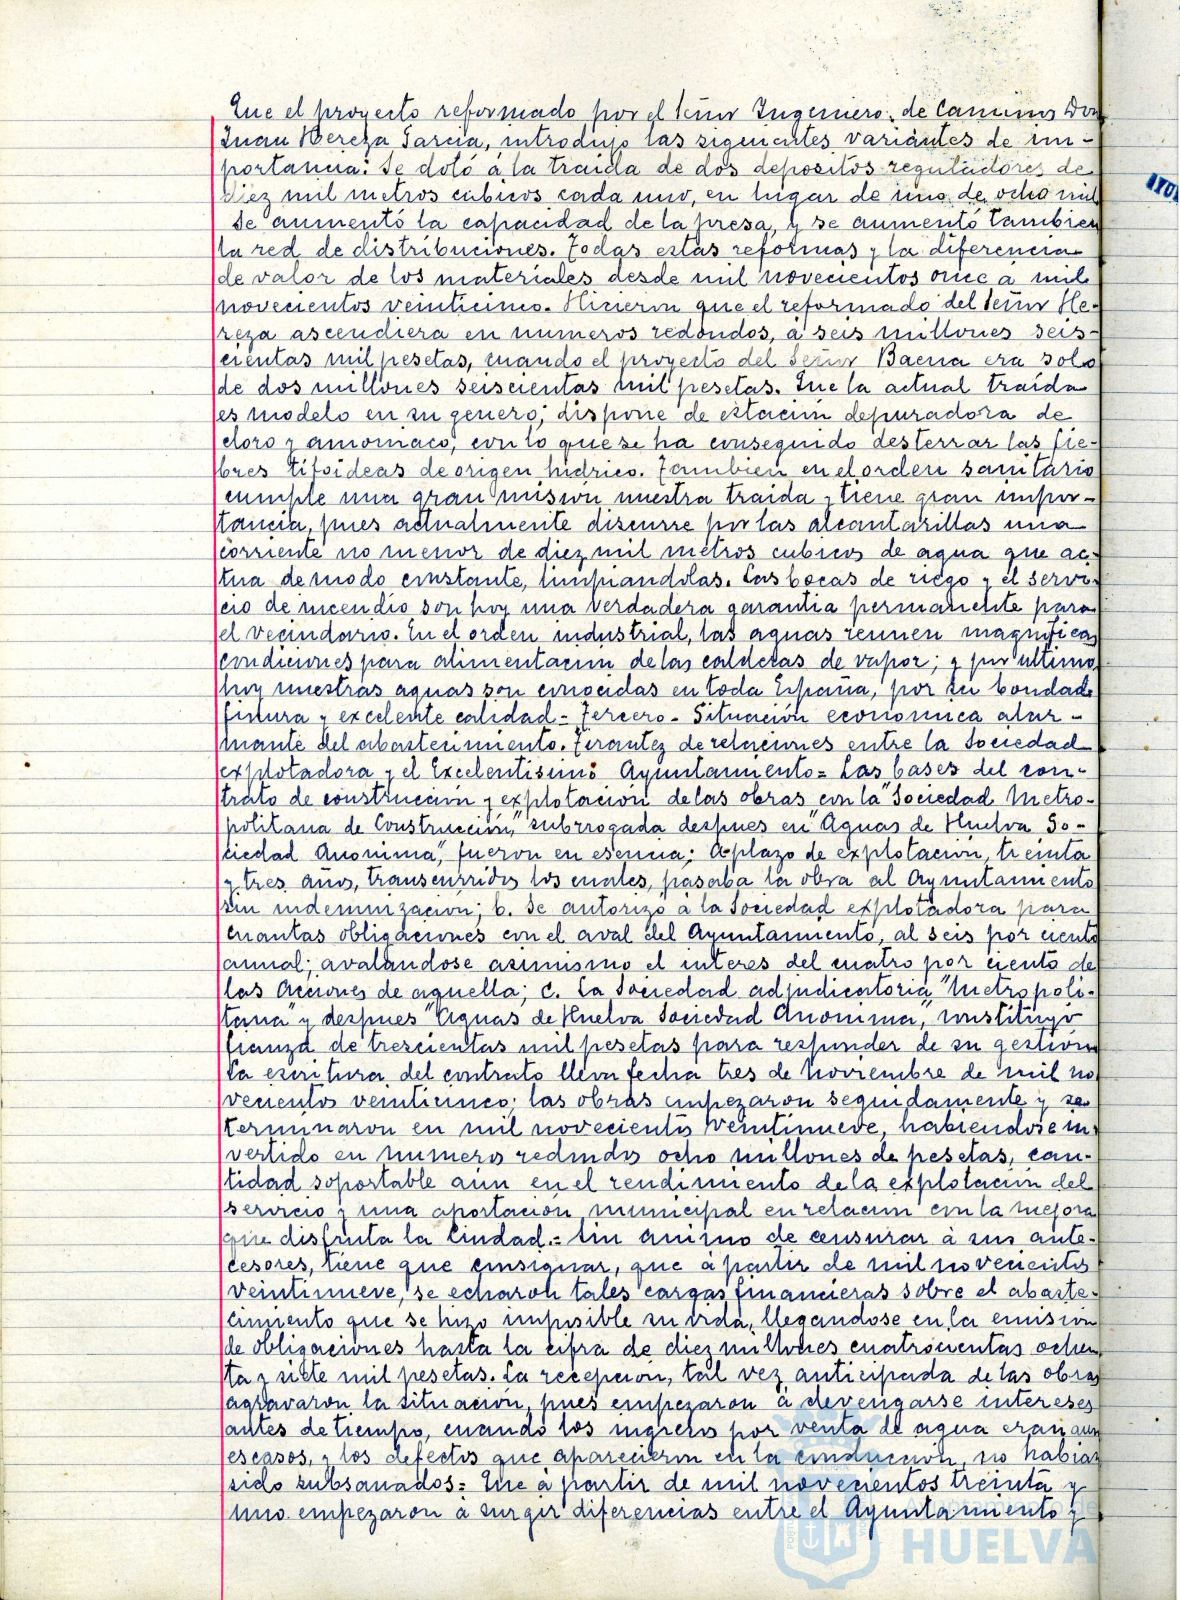 Que el proyecto reformado por el Señor Ingeniero de Caminos Don
Juan Hereza Garcia, introdujo las siguientes variantes de im-
portancia: Se dotó á la traida de dos depositos reguladores de
diez mil metros cubicos cada uno, en lugar de uno de ocho mil
Se aumentó la capacidad de la presa, y se aumentó tambien
la red de distribuciones. Todas estas reformas y la diferencia
de valor de los materiales desde mil novecientos once á mil
novecientos veinticinco. Hicieron que el reformado del Señor He-
reza ascendiera en numeros redondos, á seis millones seis-
cientas mil pesetas, cuando el proyecto del Señor Baena era solo
de dos millones seiscientas mil pesetas. Que la actual traida
es modelo en su genero; dispone de estación depuradora de
cloro y amoniaco, con lo que se ha conseguido desterrar las fie-
bres tifoideas de origen hidrico. Tambien en el orden sanitario
cumple una gran misión nuestra traida y tiene gran impor-
tancia, pues actualmente discurre por las alcantarillas una
corriente no menor de diez mil metros cubicos de agua que ac-
tua de modo constante, limpiandolas. Las bocas de riego y el servi-
cio de incendio son hoy una verdadera garantia permanente para
el vecindario. En el orden industrial, las aguas reunen magnificas
condiciones para alimentación de las calderas de vapor; y por ultimo
hoy nuestras aguas son conocidas en toda España, por su bondad
finura y excelente calidad= Tercero- Situación economica alar-
mante del abastecimiento. Tirantez de relaciones entre la Sociedad
explotadora y el Excelentisimo Ayuntamiento= Las bases del con-
trato de construcción y explotación de las obras con la "Sociedad Metro-
politana de Construcción," subrrogada despues en "Aguas de Huelva So-
ciedad Anonima", fueron en esencia; a plazo de explotación, treinta
y tres años, transcurridos los cuales, pasaba la obra al Ayuntamiento
sin indemnización; b. Se autorizó á la Sociedad explotadora para
cuantas obligaciones con el aval del Ayuntamiento, al seis por ciento
annal; avalandose asimismo el interes del cuatro por ciento de
las Acciones de aquella; c. La Sociedad adjudicatoria "Metropoli-
tana" y despues "Aguas de Huelva Sociedad Anonima", constituyó
fianza de trescientas mil pesetas para responder de su gestión
La escritura del contrato lleva fecha tres de Noviembre de mil no
vecientos veinticinco; las obras empezaron seguidamente y se
terminaron en mil novecientos veintinueve, habiendose in-
vertido en numeros redondos ocho millones de pesetas, can-
tidad soportable aún en el rendimiento de la explotación del
servicio y una aportación municipal en relacion con la mejora
que disfruta la Ciudad.= Sin animo de censurar á sus ante-
cesores, tiene que consignar, que á partir de mil novecientos
veintinueve, se echaron tales cargas financieras sobre el abaste-
cimiento que se hizo imposible su vida, llegandose en la emisión
de obligaciones hasta la cifra de diez millones cuatrocientas ochen
ta y siete mil pesetas. La recepción, tal vez anticipada de las obras
agravaron la situación, pues empezaron á devengarse intereses
antes de tiempo, cuando los ingresos por venta de agua eran aun
escasos, y los defectos que aparecieron en la conducción, no habian
sido subsanados= Que á partir de mil novecientos treinta y
uno empezaron á surgir diferencias entre el Ayuntamiento y
Ayuntamiento de
HUELVA